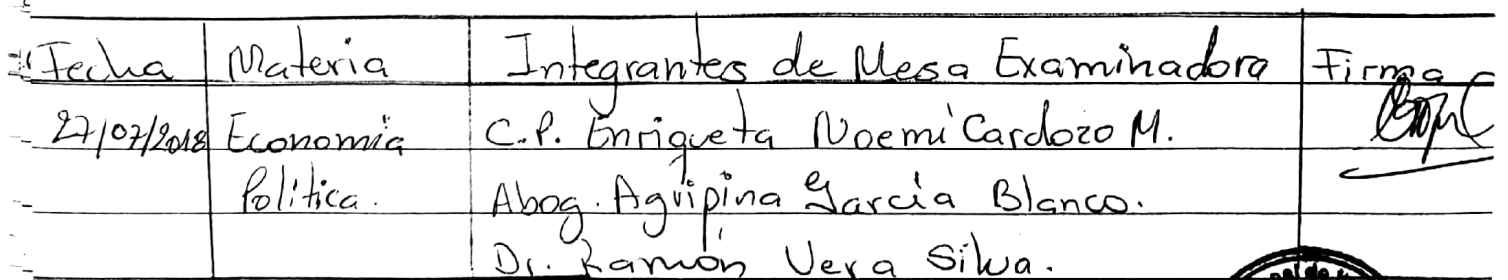 Fecha Materia Integrantes de Mesa Examinadora Firma
27/07/2018 Economía C.P. Enriqueta Noemí Cardozo M.
Política. Abog. Agripina García Blanco.
Dr. Ramón Vera Silva.